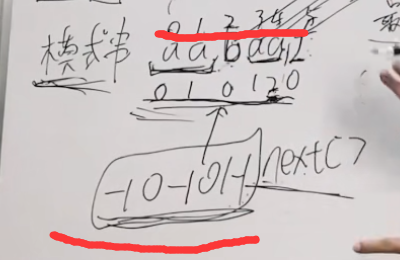 0 1 2 3 4 5
模式串 a a b a a
0 1 0 1 2 0
-1 0 -1 0 1 -1 next[]